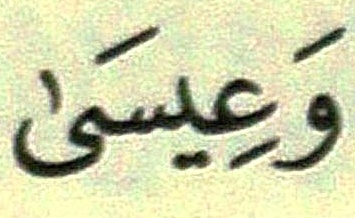 وَعِيسَىٰ